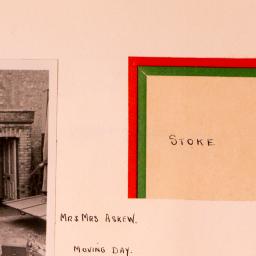 STOKE
MR & MRS ASKEW.
MOVING DAY.